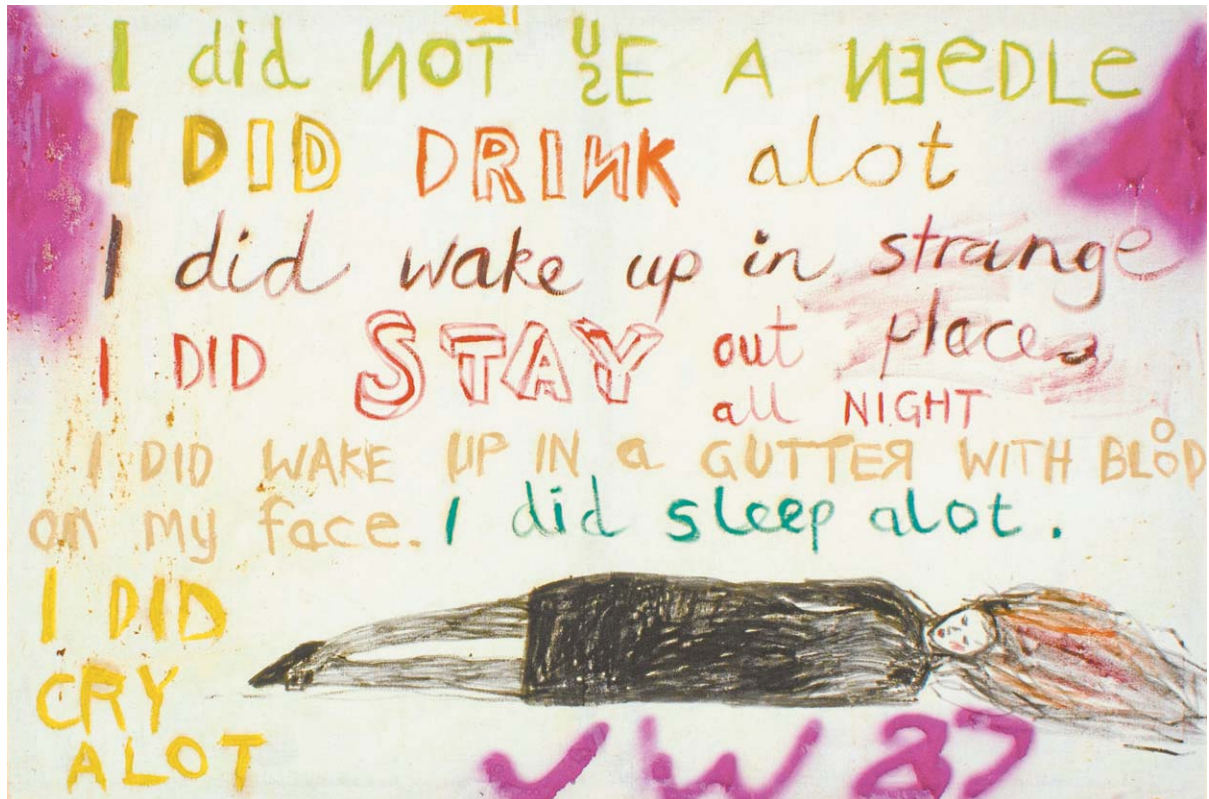 I did NOT USE A NEeDLe
I DID DRINK alot
I did wake up in strange
places
I DID STAY out
all NIGHT
I DID WAKE UP IN a GUTTER WITH BLOOD
on my face. I did sleep alot.
I DID
CRY
ALOT
JW 87